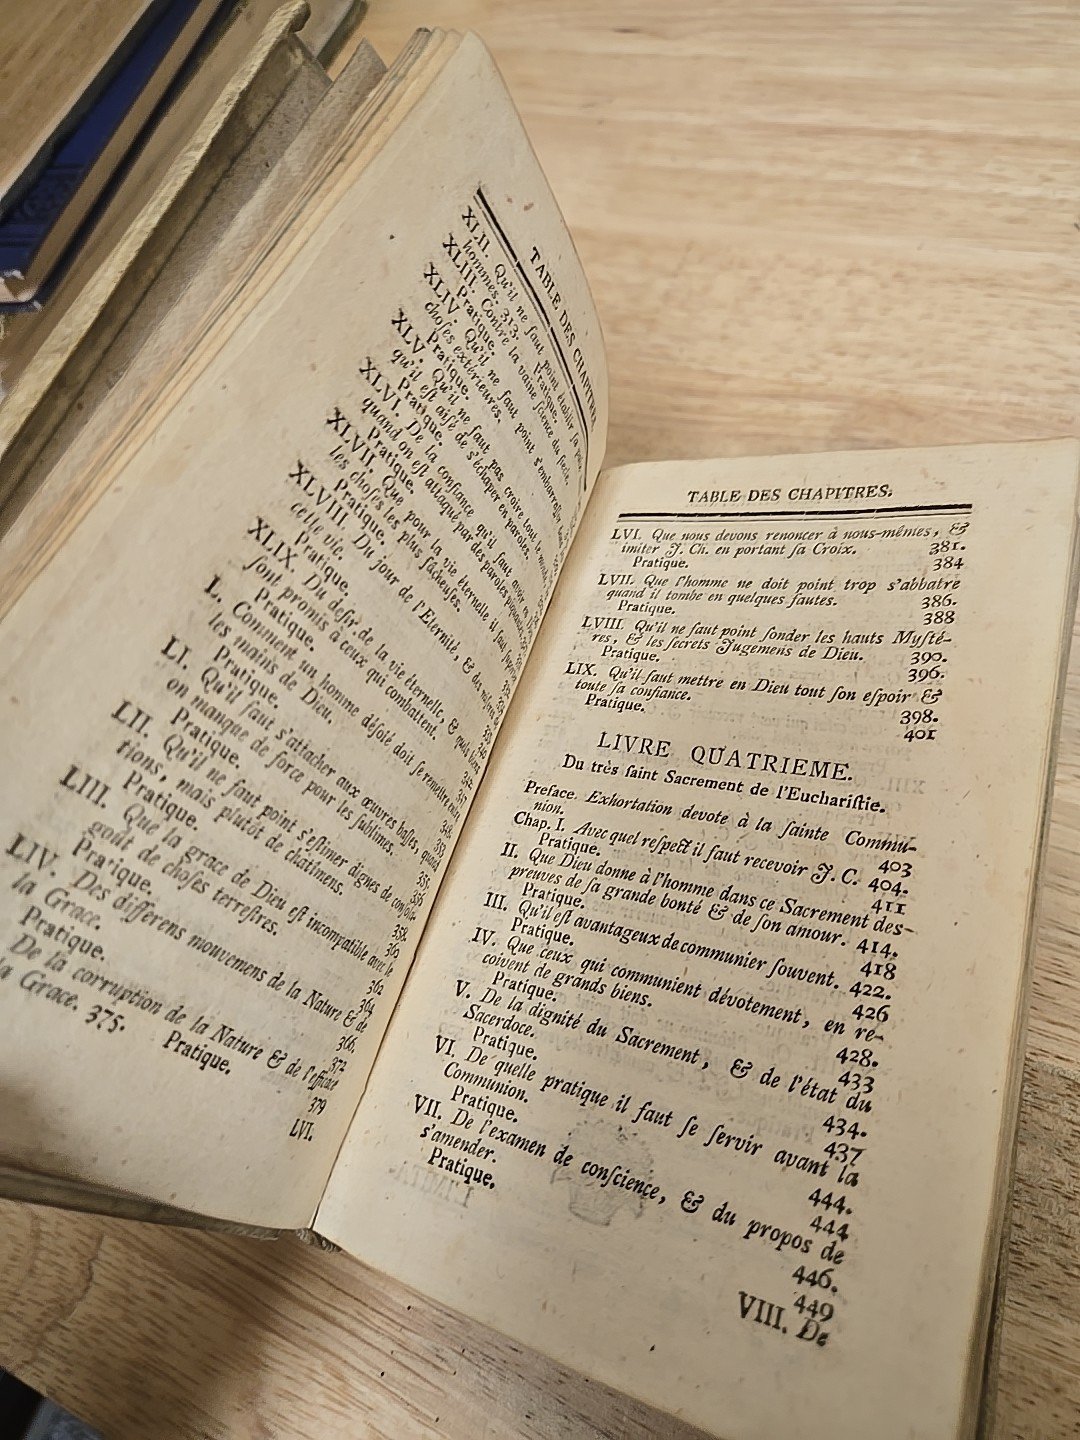 TABLE DES CHAPITRES
XLII. Qu'il ne faut point établir sa paix
hommes. 313. Pratique.
XLIII. Contre la vaine ſcience du ſiecle.
Pratique.
XLIV. Qu'il ne faut point s'embarraſſer
choſes extérieures.
Pratique.
XLV. Qu'il ne faut pas croire tout le monde,
qu'il eſt aiſé de s'échaper en paroles.
Pratique.
XLVI. De la confiance qu'il faut avoir en
quand on eſt attaqué par des paroles
Pratique.
XLVII. Que pour la vie éternelle il faut
les choſes les plus fâcheuſes.
Pratique.
XLVIII. Du jour de l'Eternité, & des miſéres de
cette vie.
Pratique.
XLIX. Du deſir de la vie éternelle, & quels biens
ſont promis à ceux qui combattent.
Pratique.
L. Comment un homme déſolé doit ſe remettre entre
les mains de Dieu.
Pratique.
LI. Qu'il faut s'attacher aux œuvres baſſes, quand
on manque de force pour les ſublimes.
Pratique.
LII. Qu'il ne faut point s'eſtimer dignes de conſola-
tions, mais plutôt de châtimens.
Pratique.
LIII. Que la grace de Dieu eſt incompatible avec le
goût de choſes terreſtres.
Pratique.
LIV. Des differens mouvemens de la Nature & de
la Grace. 366.
Pratique. 372
De la corruption de la Nature & de l'efficace
la Grace. 375. Pratique. 379
LVI.
TABLE DES CHAPITRES.
LVI. Que nous devons renoncer à nous-mêmes, &
imiter J. Ch. en portant ſa Croix. 381.
Pratique. 384
LVII. Que l'homme ne doit point trop s'abbatre
quand il tombe en quelques fautes. 386.
Pratique. 388
LVIII. Qu'il ne faut point ſonder les hauts Myſté-
res, & les ſecrets Jugemens de Dieu. 390.
Pratique. 396.
LIX. Qu'il faut mettre en Dieu tout ſon eſpoir &
toute ſa confiance. 398.
Pratique. 401
LIVRE QUATRIEME.
Du très ſaint Sacrement de l'Euchariſtie.
Preface. Exhortation devote à la ſainte Commu-
nion. 403
Chap. I. Avec quel reſpect il faut recevoir J. C. 404.
Pratique. 411
II. Que Dieu donne à l'homme dans ce Sacrement des
preuves de ſa grande bonté & de ſon amour. 414.
Pratique. 418
III. Qu'il eſt avantageux de communier ſouvent. 422.
Pratique. 426
IV. Que ceux qui communient dévotement, en re-
coivent de grands biens. 428.
Pratique. 433
V. De la dignité du Sacrement, & de l'état du
Sacerdoce. 434.
Pratique. 437
VI. De quelle pratique il faut ſe ſervir avant la
Communion. 444.
Pratique. 444
VII. De l'examen de conſcience, & du propos de
s'amender. 446.
Pratique. 449
VIII. De